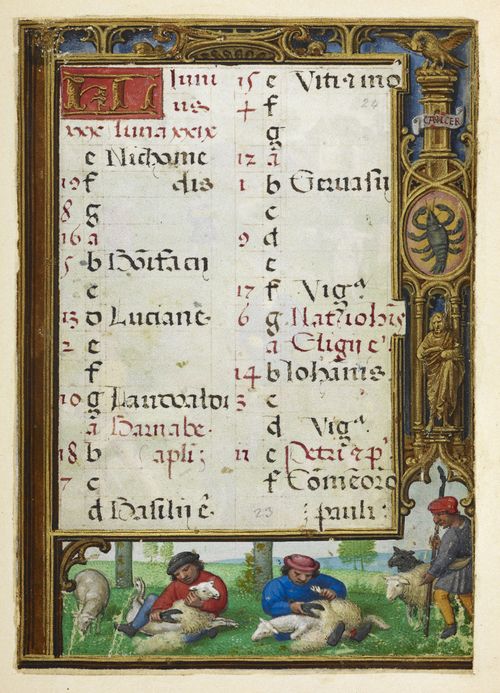 Iuni
us
xxx luna xxix
e Nichome
19 f dis
8 g
16 a
5 b Bonifacij
c
13 d Luciane
2 e
f
10 g Landoaldi
a Barnabe
18 b apli;
7 c
d Basilij e
15 e Viti z mo
4 f
g
12 a
1 b Geruasij
c
9 d
e
17 f Vigᵃ
6 g Nat Iohis
a Eligii e
14 b Iohanis
3 c
d Vigᵃ
11 e Petri z p
f Comemoro
pauli
CANCER
24
23